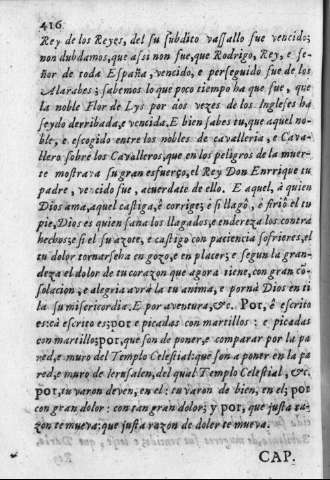 416
Rey de los Reyes, del su subdito vassallo fue vencido;
non dubdamos, que assi non fue, que Rodrigo, Rey, e se-
ñor de toda España, vencido, e perseguido fue de los
Alarabes; sabemos lo que poco tiempo ha que fue, que
la noble Flor de Lys por dos vezes de los Ingleses ha
seydo derribada, e vencida. E bien sabes tu, que aquel no-
ble, e escogido entre los nobles de cavalleria, e Cava-
llero sobre los Cavalleros, que en los peligros de la muer-
te mostrava su gran esfuerço, el Rey Don Enrrique tu
padre, vencido fue, acuerdate de ello. E aquel, à quien
Dios ama, aquel castiga, è corrige; è si llagô, è firiô el tu
pie, Dios es quien sana los llagados, e endereza los contra
hechos; e si el su azote, e castigo con paciencia sofrieres, el
tu dolor tornarseha en gozo, e en placer; e segun la gran-
deza el dolor de tu corazon que agora tiene, con gran co-
solacion, e alegria avrà la tu anima, e pornà Dios en ti
la su misericordia. E por aventura, &c. Pot, ê escrito
està escrito es; pot e picadas con martillos: e picadas
con martillo; pot, que son de poner, e comparar por la pa
red, e muro del Templo Celestial: que son a poner en la pa
red, e muro de Ierusalen, del qual Templo Celestial, &c.
pot, tu varon deven, en el: tu varon de bien, en el; pot
con gran dolor: con tan gran dolor; y pot, que justa ra-
zon te mueva: que justa razon de doler te mueva.
CAP.